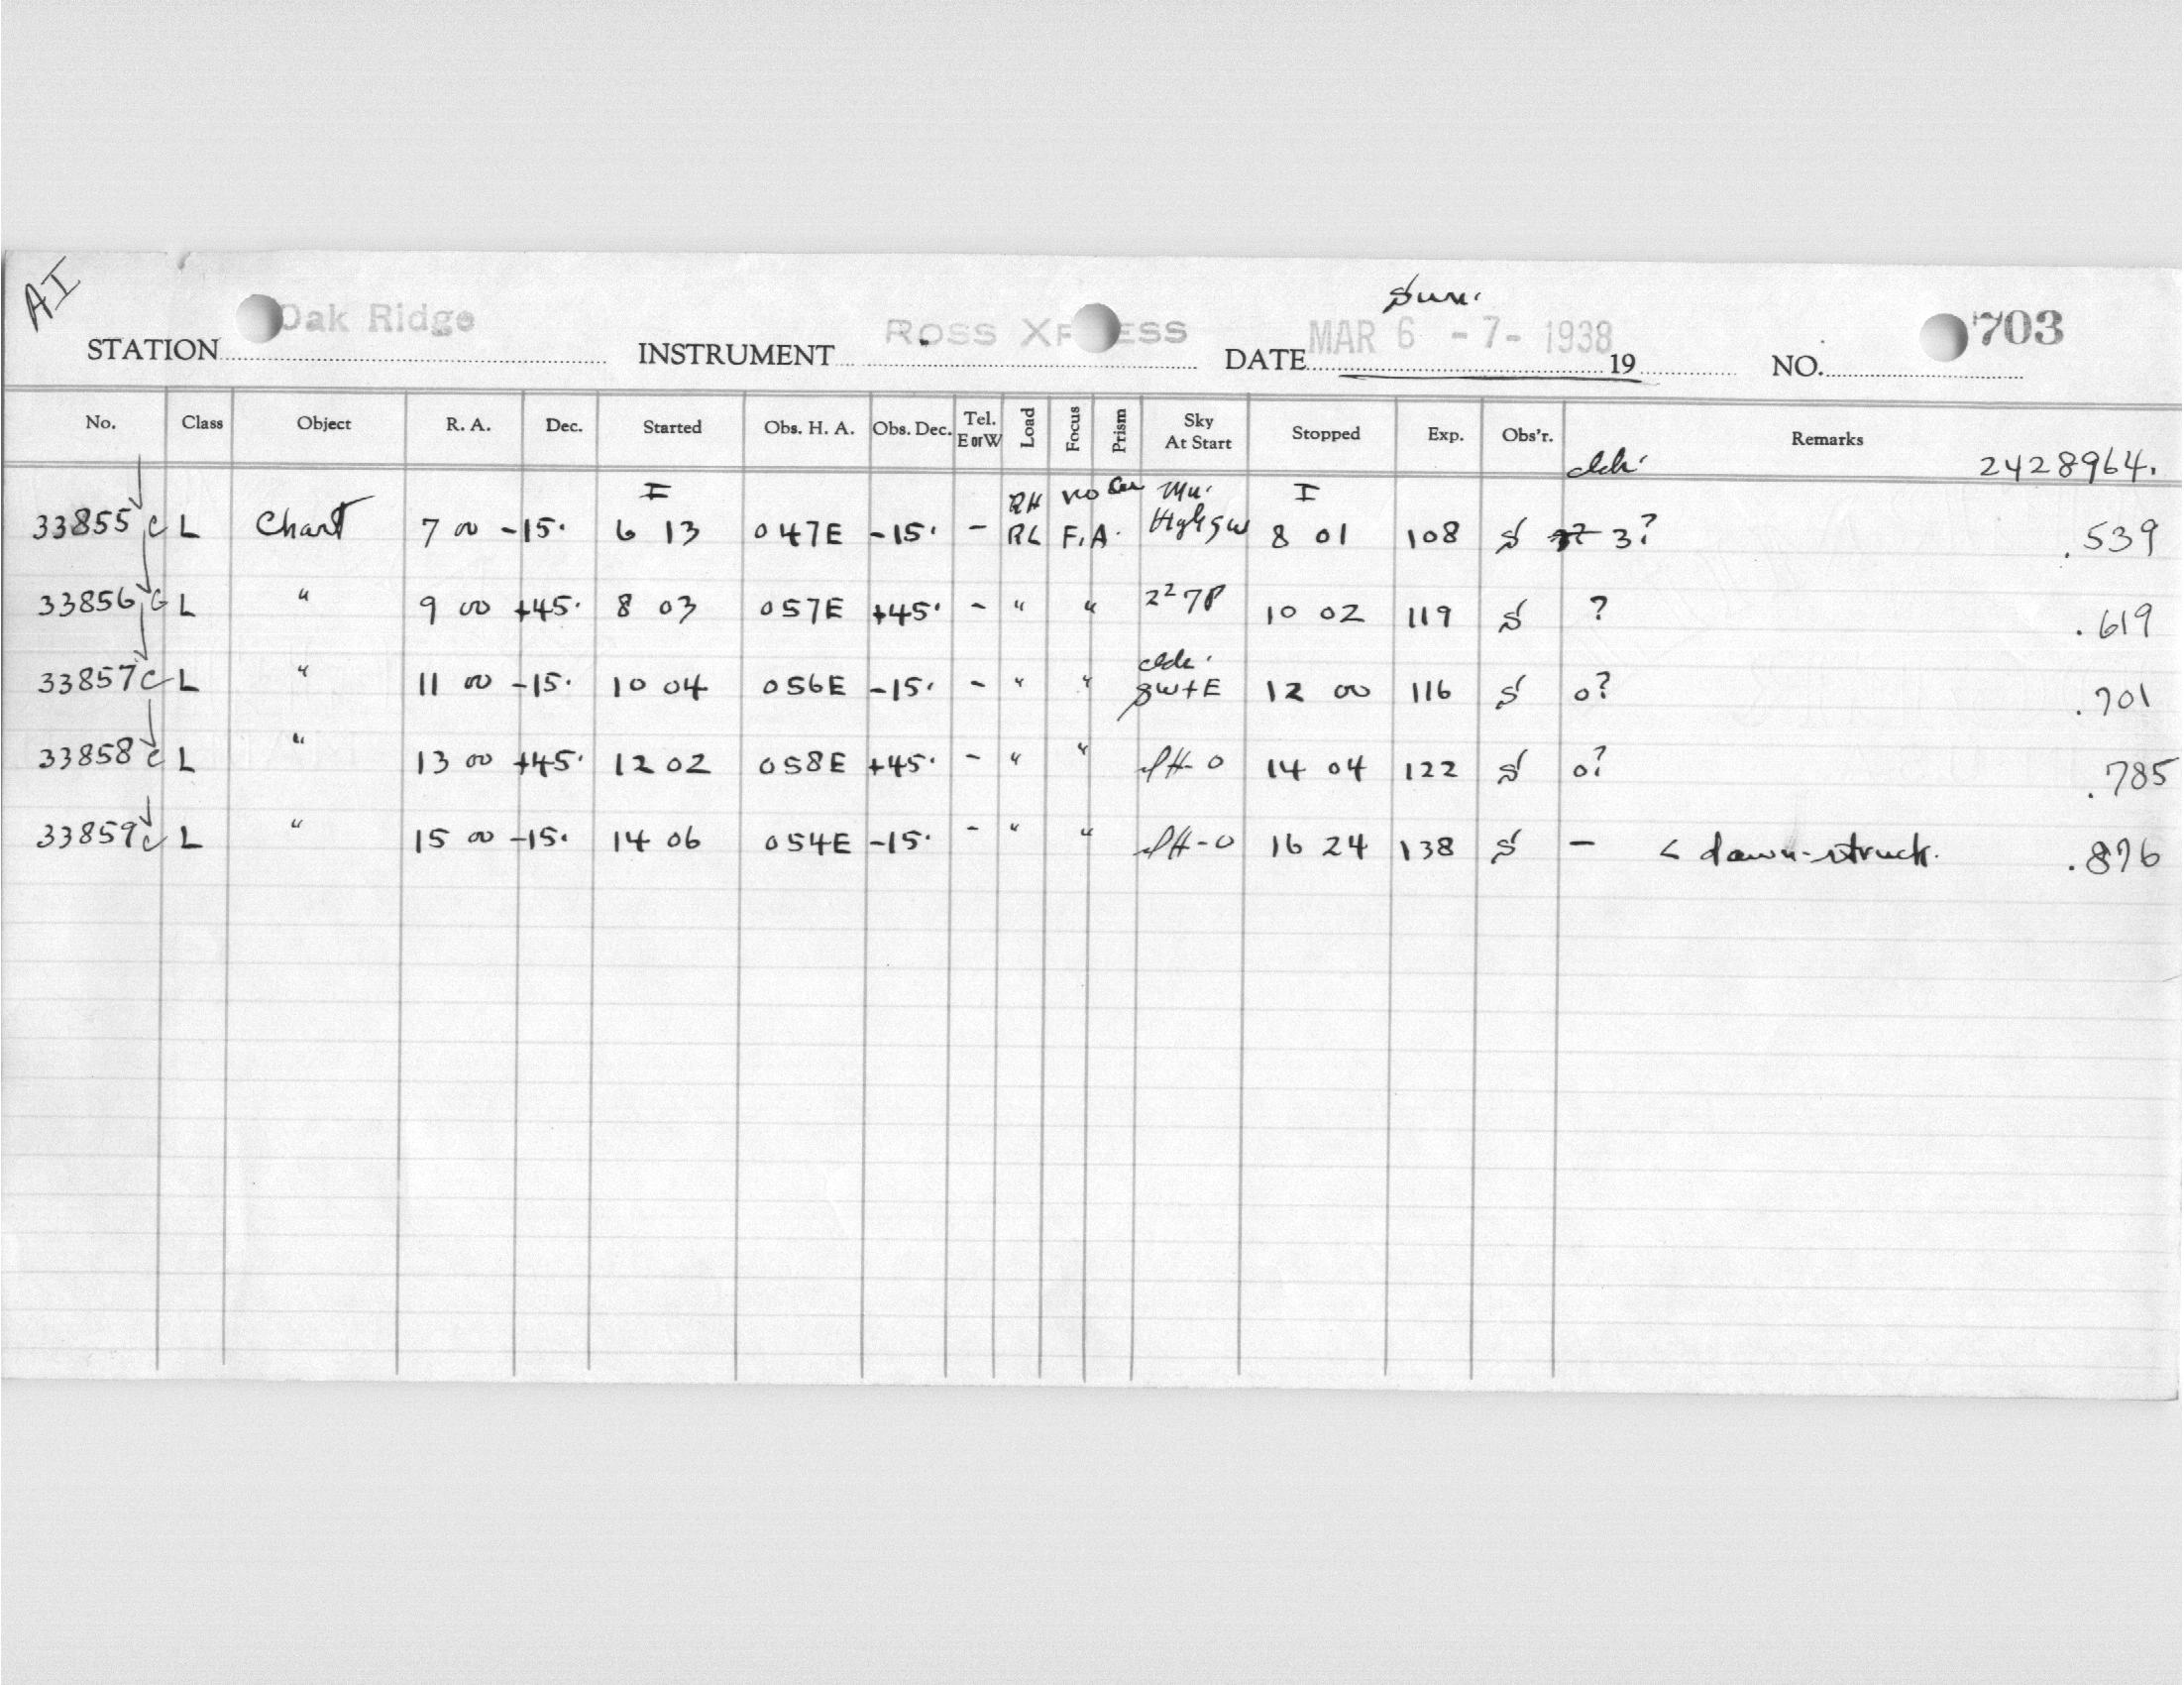 AI
Sun.
STATION Oak Ridge INSTRUMENT ROSS XP ESS DATE MAR 6 - 7 - 1938 19 NO. 703
No. Class Object R. A. Dec. Started Obs. H. A. Obs. Dec. Tel. E or W Load Focus Prism Sky At Start Stopped Exp. Obs'r. Remarks
2428964.
I RH no I
33855 C L Chart 7 00 -15. 6 13 0 47E -15. - RL F.A. 8 01 108 S 3? .539
33856 C L " 9 00 +45. 8 03 0 57E +45. - " " 10 02 119 S ? .619
33857 C L " 11 00 -15. 10 04 0 56E -15. - " " SW+E 12 00 116 S 0? .701
33858 C L " 13 00 +45. 12 02 0 58E +45. - " " 14 04 122 S 0? .785
33859 C L " 15 00 -15. 14 06 0 54E -15. - " " 16 24 138 S - < dawn-struck. .876